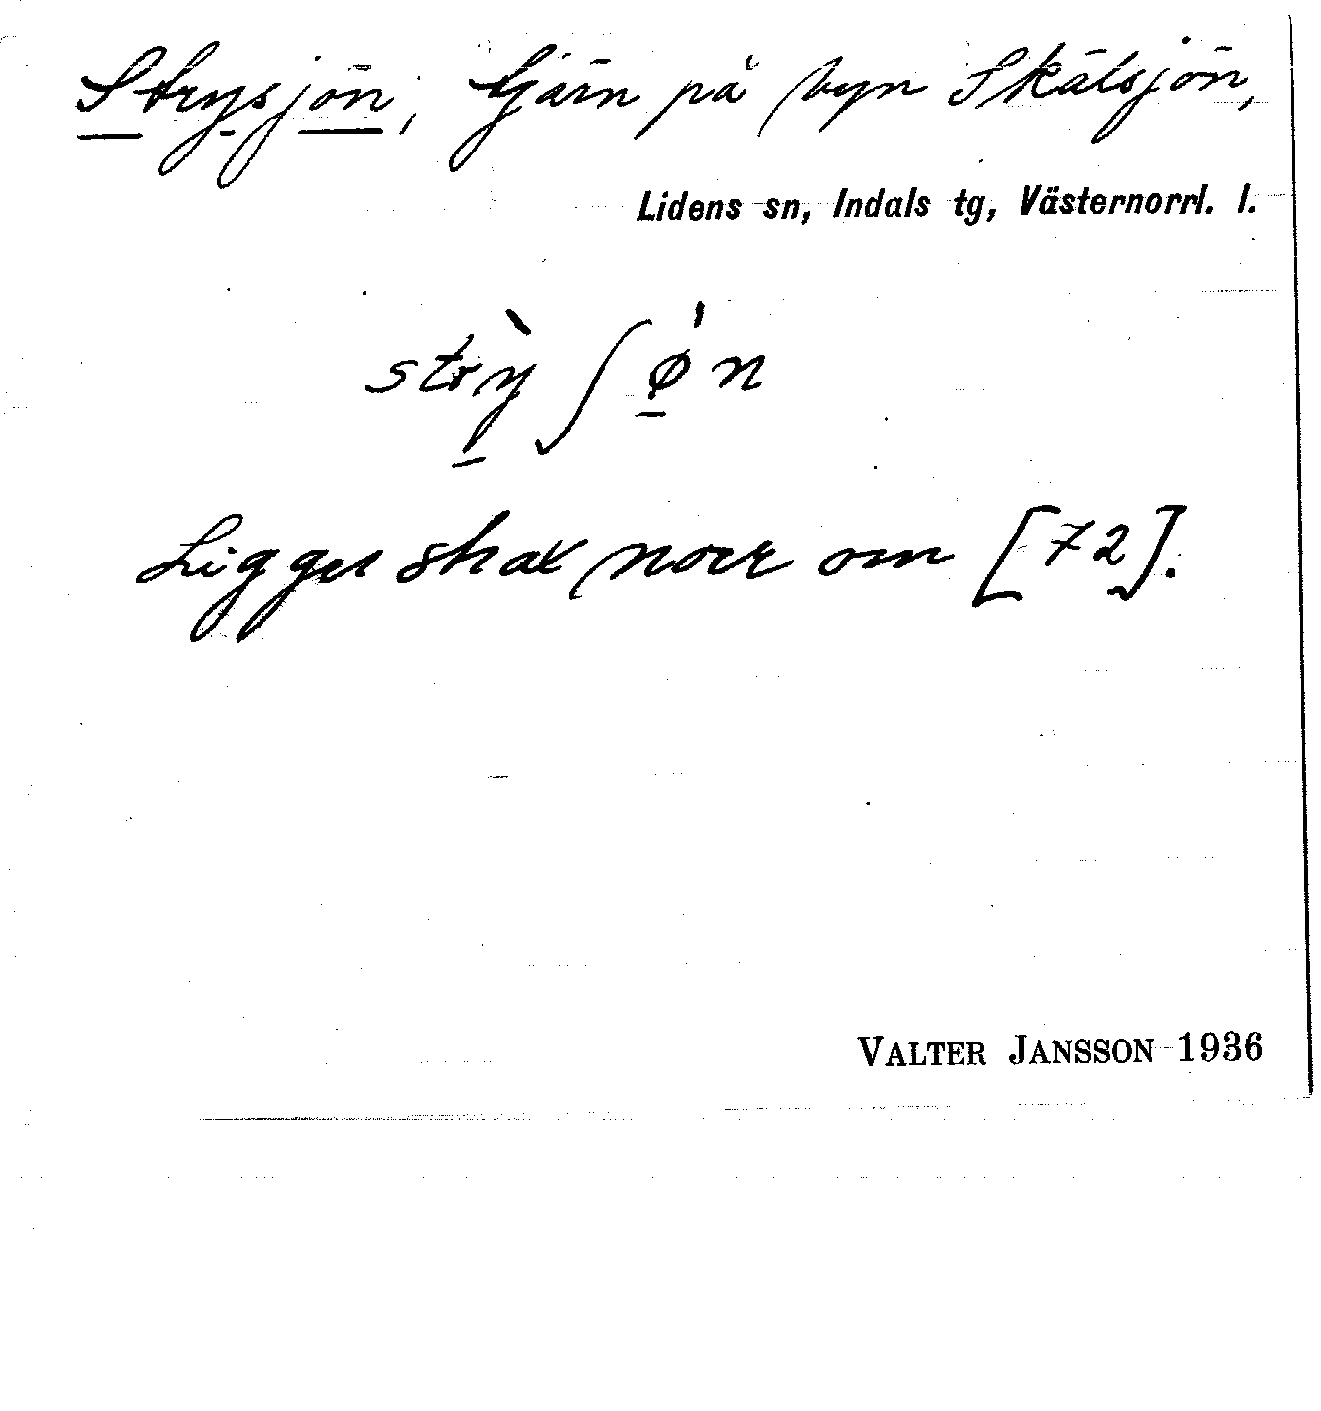 Strysjön, tjärn på byn Skälsjön,
Lidens sn, Indals tg, Västernorrl. l.
strỳ ʃǿn
Ligger strax norr om [72].
VALTER JANSSON 1936